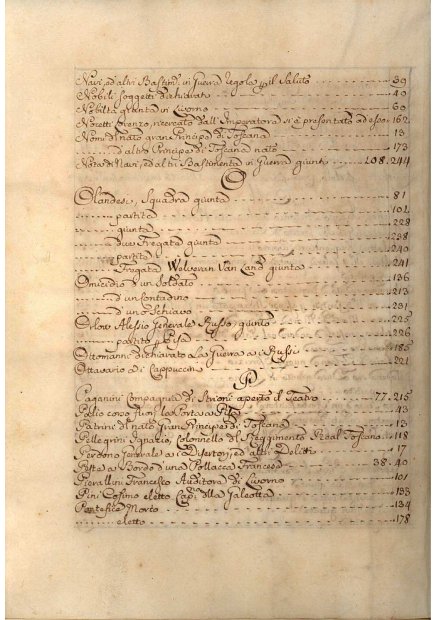 Navi, ed altri Bastim.ti in Guerra regola p. il Saluto 39
Nobili soggetti dichiarati 40
Nobiltà giunta in Livorno 60
Lorenzo, ricercato dall'Imperatora si è presentato ad esso 162
Nomi di nato gran Principe di Toscana 13
d'altro Principe di Toscana nato 173
Nota di Navi, ed altri Bastimenta in Guerra giunti 108. 244
O
Olandese, Squadra giunta 81
partita 102
giunta 228
due Fregata giunta 238
partita 240
Fregata Wolveran Van Land giunta 241
Omicidio d'un Soldato 136
d'un Contadino 213
d'uno Schiavo 231
Orlow Alessio Generale Russo giunto 225
partito p. Pisa 226
Ottomanni dichiarato La Guerra a i Russi 185
Ottavario di Cappuccini 221
P
Paganini Compagnia di Strioni aperto il Teatro 77. 215
Palio corso fuor le Porta a Pisa 43
Patrini di nato Gran Principe di Toscana 13
Pellegrini Ignazio, Colonnello di Reggimento Real Toscano 118
Perdono Generale a i Disertori, ed altri Delitti 17
Peste a Bordo d'una Pollacca Francese 38. 40
Pierallini Francesco Auditora di Livorno 101
Pini Cosimo eletto Cap.no della Galeotta 133
Pontefice Morto 134
eletto 178